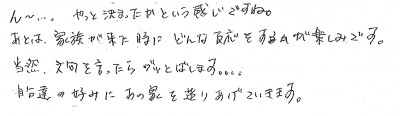 ん〜…。やっと決まったかという感じですね。
あとは、家族が来た時にどんな反応をするかが楽しみです。
当然、文句を言ったらブッとばします。。。。
自分達の好みにあの家を造りあげていきます。